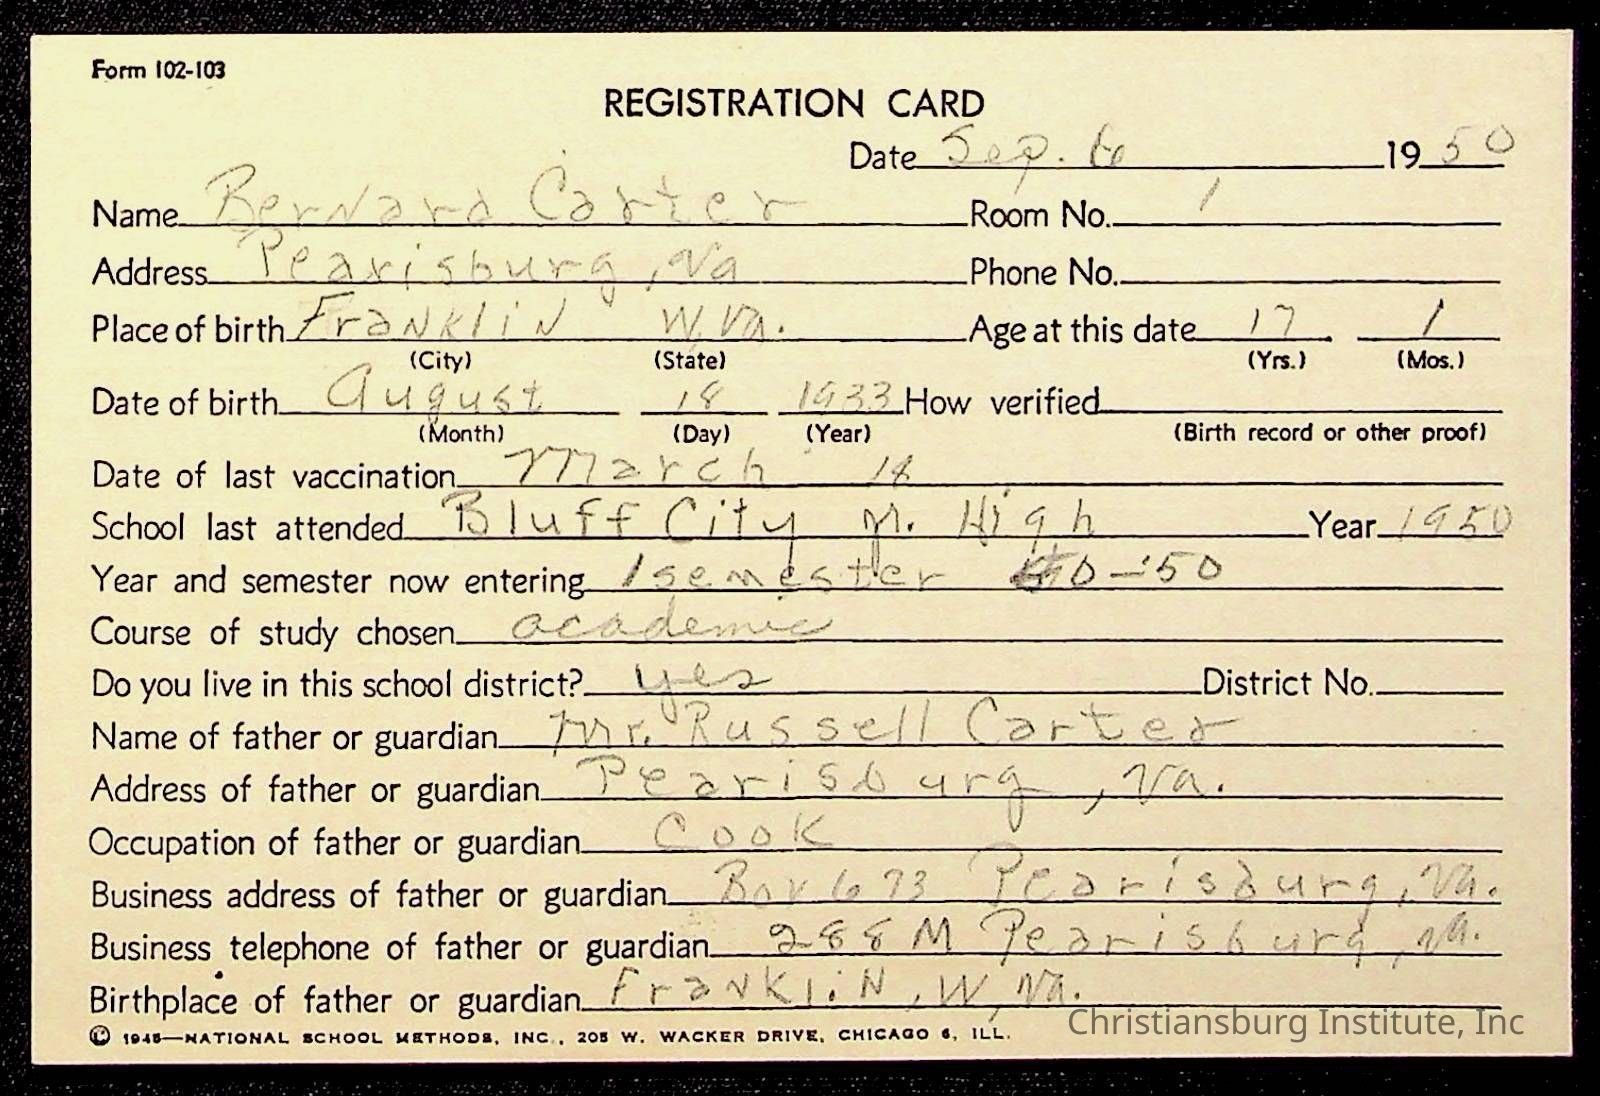 Form 102-103
REGISTRATION CARD
Date Sep. 6 1950
Name Bernard Carter Room No. 1
Address Pearisburg, Va Phone No.
Place of birth Franklin W. Va. Age at this date 17 1
(City) (State) (Yrs.) (Mos.)
Date of birth August 18 1933 How verified
(Month) (Day) (Year) (Birth record or other proof)
Date of last vaccination March 18
School last attended Bluff City Jr. High Year 1950
Year and semester now entering 1 semester -'50
Course of study chosen academic
Do you live in this school district? yes District No.
Name of father or guardian Mr. Russell Carter
Address of father or guardian Pearisburg, Va.
Occupation of father or guardian Cook
Business address of father or guardian Box 673 Pearisburg, Va.
Business telephone of father or guardian 288 M Pearisburg, Va.
Birthplace of father or guardian Franklin, W, Va.
© 1945—NATIONAL SCHOOL METHODS, INC., 205 W. WACKER DRIVE, CHICAGO 6, ILL.
Christiansburg Institute, Inc